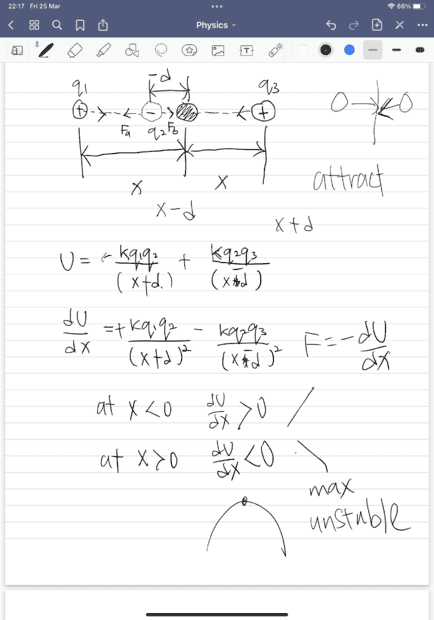 22:17 Fri 25 Mar 66%
Physics
-d
q1 q3
+ - +
Fa q2 Fb
x x
attract
x-d x+d
U = - kq1q2/(x+d) + kq2q3/(x-d)
dU/dx = + kq1q2/(x+d)² - kq2q3/(x-d)² F = - dU/dx
at x<0 dU/dx >0
at x>0 dU/dx <0
max
unstable